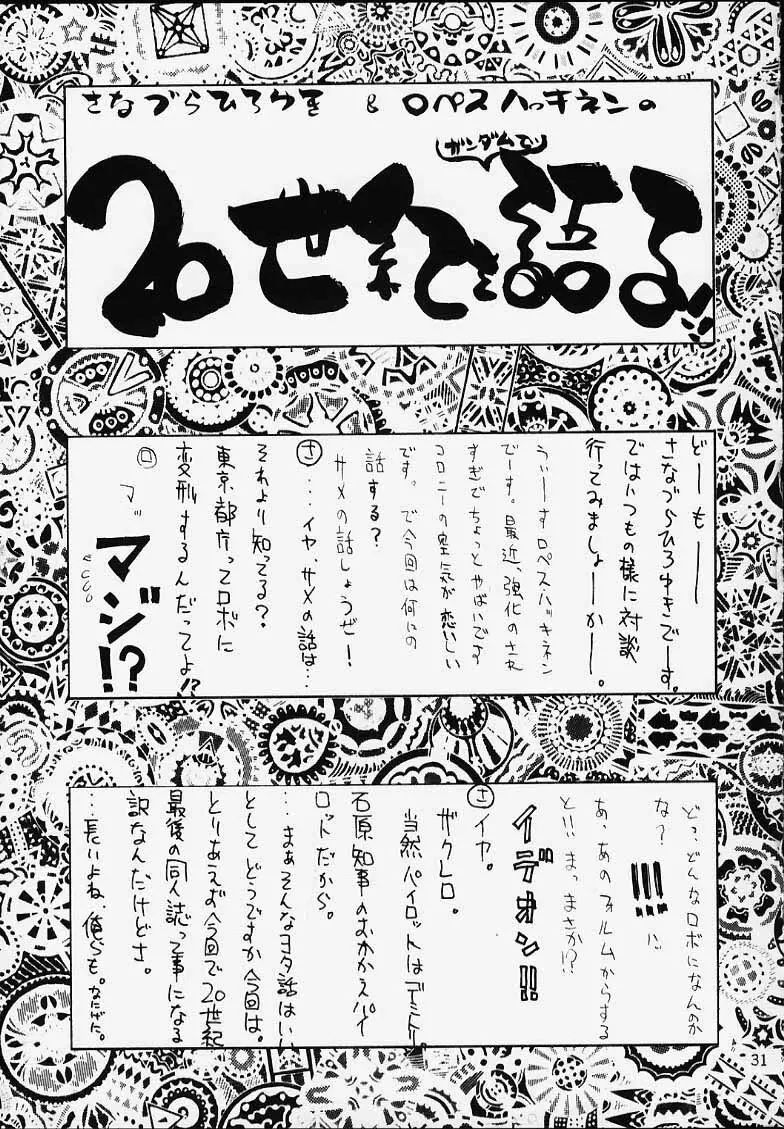 さなづらひろゆき & ロペスハッキネンの
ガンダムで
20世紀を語る!!
どーもー
さなづらひろゆきでーす。
ではいつもの様に対談
行ってみましょーかー。
うぃーすロペスハッキネン
でーす。最近、強化のされ
すぎでちょっとやばいです
コロニーの空気が恋しい
です。で今回は何にの
話する?
サメの話しょうぜー!
さ …イヤ、サメの話は…
それより知ってる?
東京都庁ってロボに
変形するんだってよ!?
ロ マッ
マジ!?
どっ、どんなロボになんのか
な?
!!!ハ
あ、あのフォルムからする
と!!まっまさか!?
イデオン!!
さ イヤ。
ザクレロ。
当然パイロットはデミトリー。
石原知事のおかかえパイ
ロットだから。
…まぁそんなヨタ話はいい
としてどうですか今回は。
とりあえず今回で20世紀
最後の同人誌って事になる
訳なんだけどさ。
…長いよね、俺らも。
31